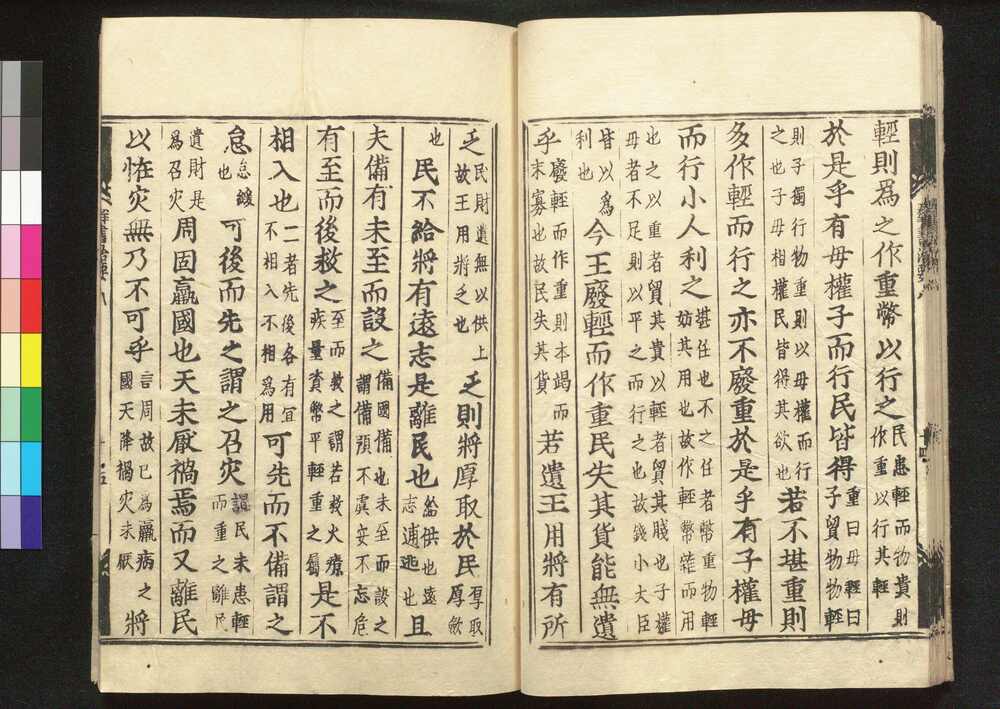 輕則爲之作重幣以行之民患輕而物貴則作重以行其輕
於是乎有母權子而行民皆得重曰母輕曰子貿物物輕
則子獨行物重則以母權而行之也子母相權民皆得其欲也若不堪重則
多作輕而行之亦不廢重於是乎有子權母
而行小人利之堪任也不之任者幣重物輕妨其用也故作輕幣雜而用
也之以重者貿其貴以輕者貿其賤也子權母者不足則以平之而行之也故錢小大臣
皆以爲利也今王廢輕而作重民失其貨能無遺
乎廢輕而作重則本竭而末寡也故民失其貨若遺王用將有所
乏民財遺無以供上故王用將乏也乏則將厚取於民厚取厚斂
也民不給將有遠志是離民也給供也遠志逋逃也且
夫備有未至而設之備國備也未至而設之謂備預不虞安不忘危
有至而後救之至而救之謂若救火療疾量資幣平輕重之屬是不
相入也二者先後各有宜不相入不相爲用可先而不備謂之
怠怠緩也可後而先之謂之召灾謂民未患輕而重之離民
遺財是爲召灾周固羸國也天未厭禍焉而又離民
以恠灾無乃不可乎言周故已爲羸病之國天降禍灾未厭將